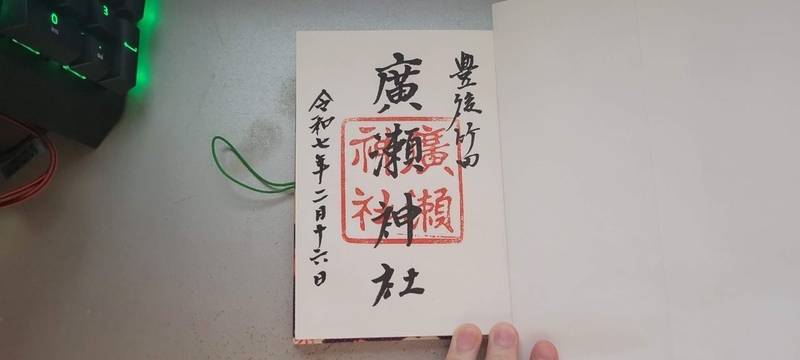 豊後竹田
廣瀬神社
廣瀬神社
令和七年二月十六日